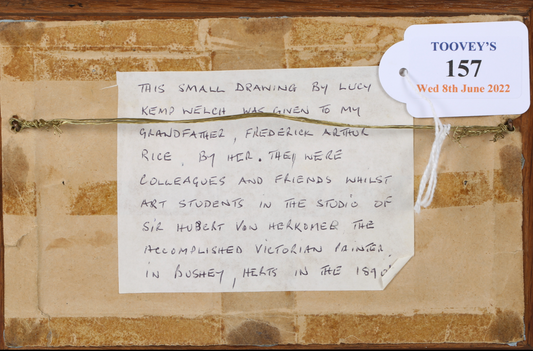 TOOVEY'S
157
Wed 8th June 2022
THIS SMALL DRAWING BY LUCY
KEMP WELCH WAS GIVEN TO MY
GRANDFATHER, FREDERICK ARTHUR
RICE, BY HER. THEY WERE
COLLEAGUES AND FRIENDS WHILST
ART STUDENTS IN THE STUDIO OF
SIR HUBERT VON HERKOMER THE
ACCOMPLISHED VICTORIAN PAINTER
IN BUSHEY, HERTS IN THE